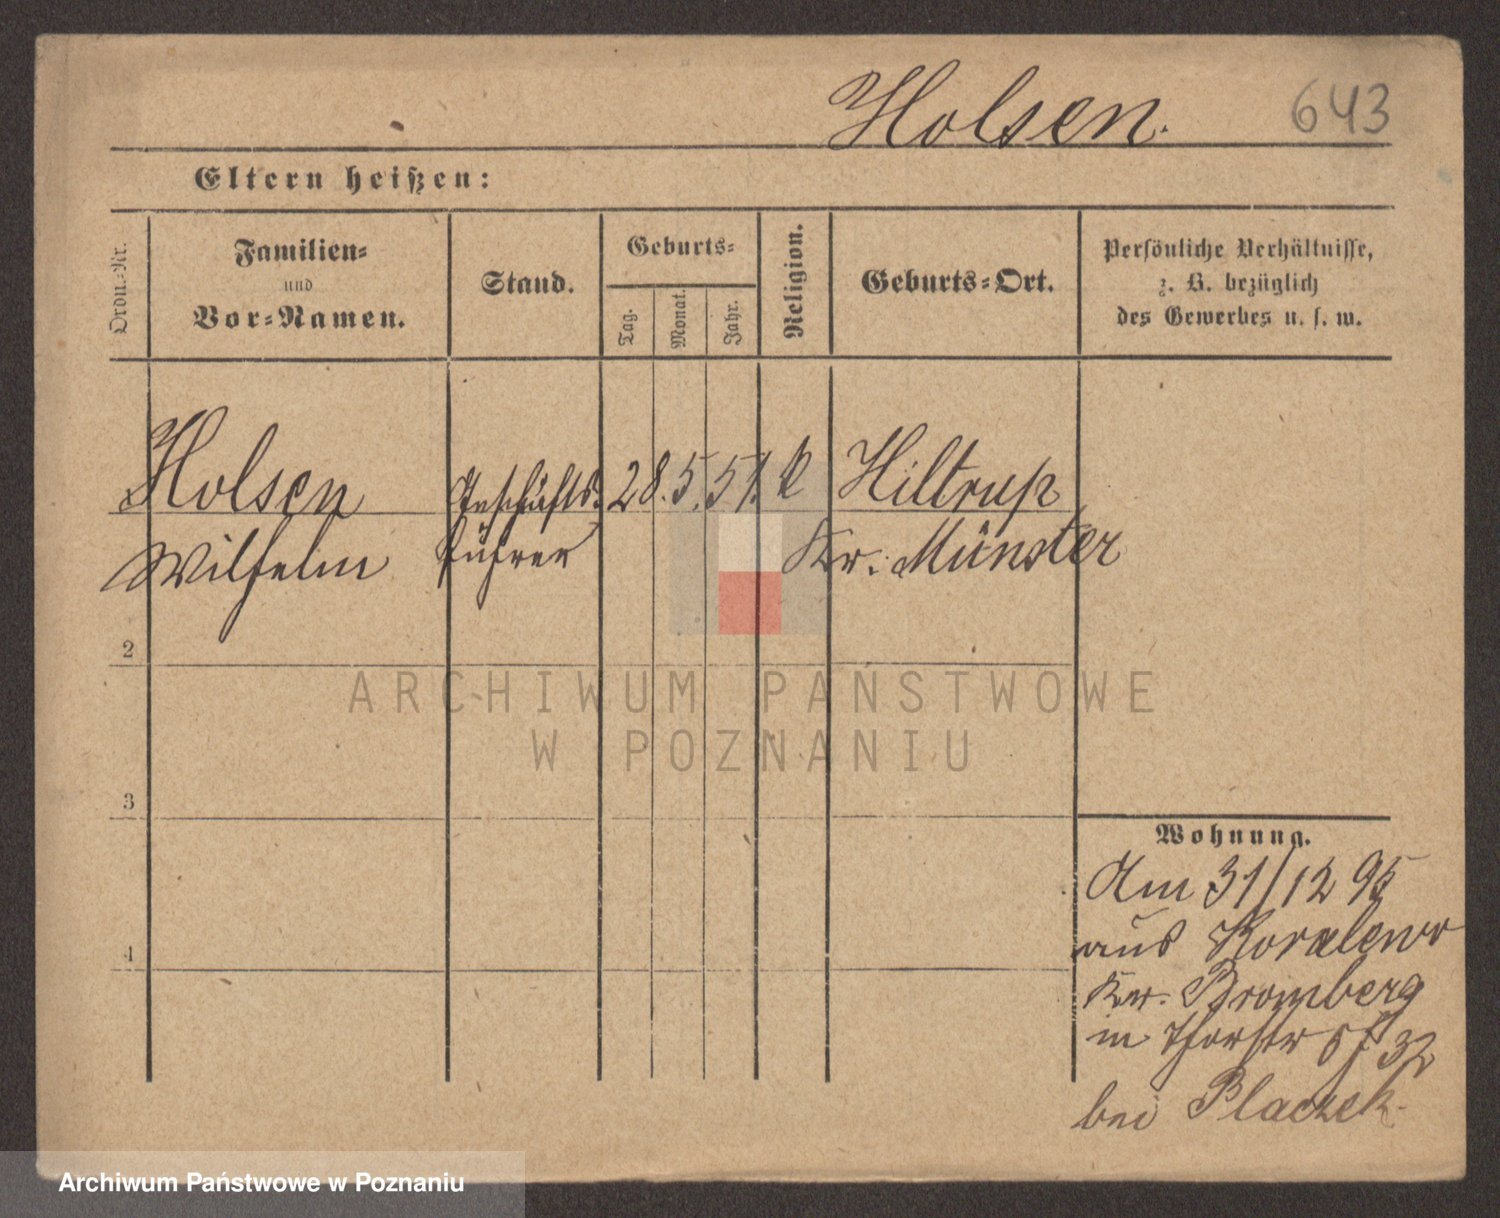 Holsen.
643
Eltern heißen:
Ordn.-Nr.
Familien-
und
Vor-Namen.
Stand.
Geburts-
Tag.
Monat.
Jahr.
Religion.
Geburts-Ort.
Persönliche Verhältnisse,
z. B. bezüglich
des Gewerbes u. s. w.
Holsen Geschäfts- 28. 5. 51. k Hiltrup
Wilhelm führer Kr. Münster
2
3
4
ARCHIWUM PAŃSTWOWE
W POZNANIU
Wohnung.
Am 31/12 95
aus Koralewo
Kr. Bromberg
in Thorstr 32
bei Placzek.
Archiwum Państwowe w Poznaniu